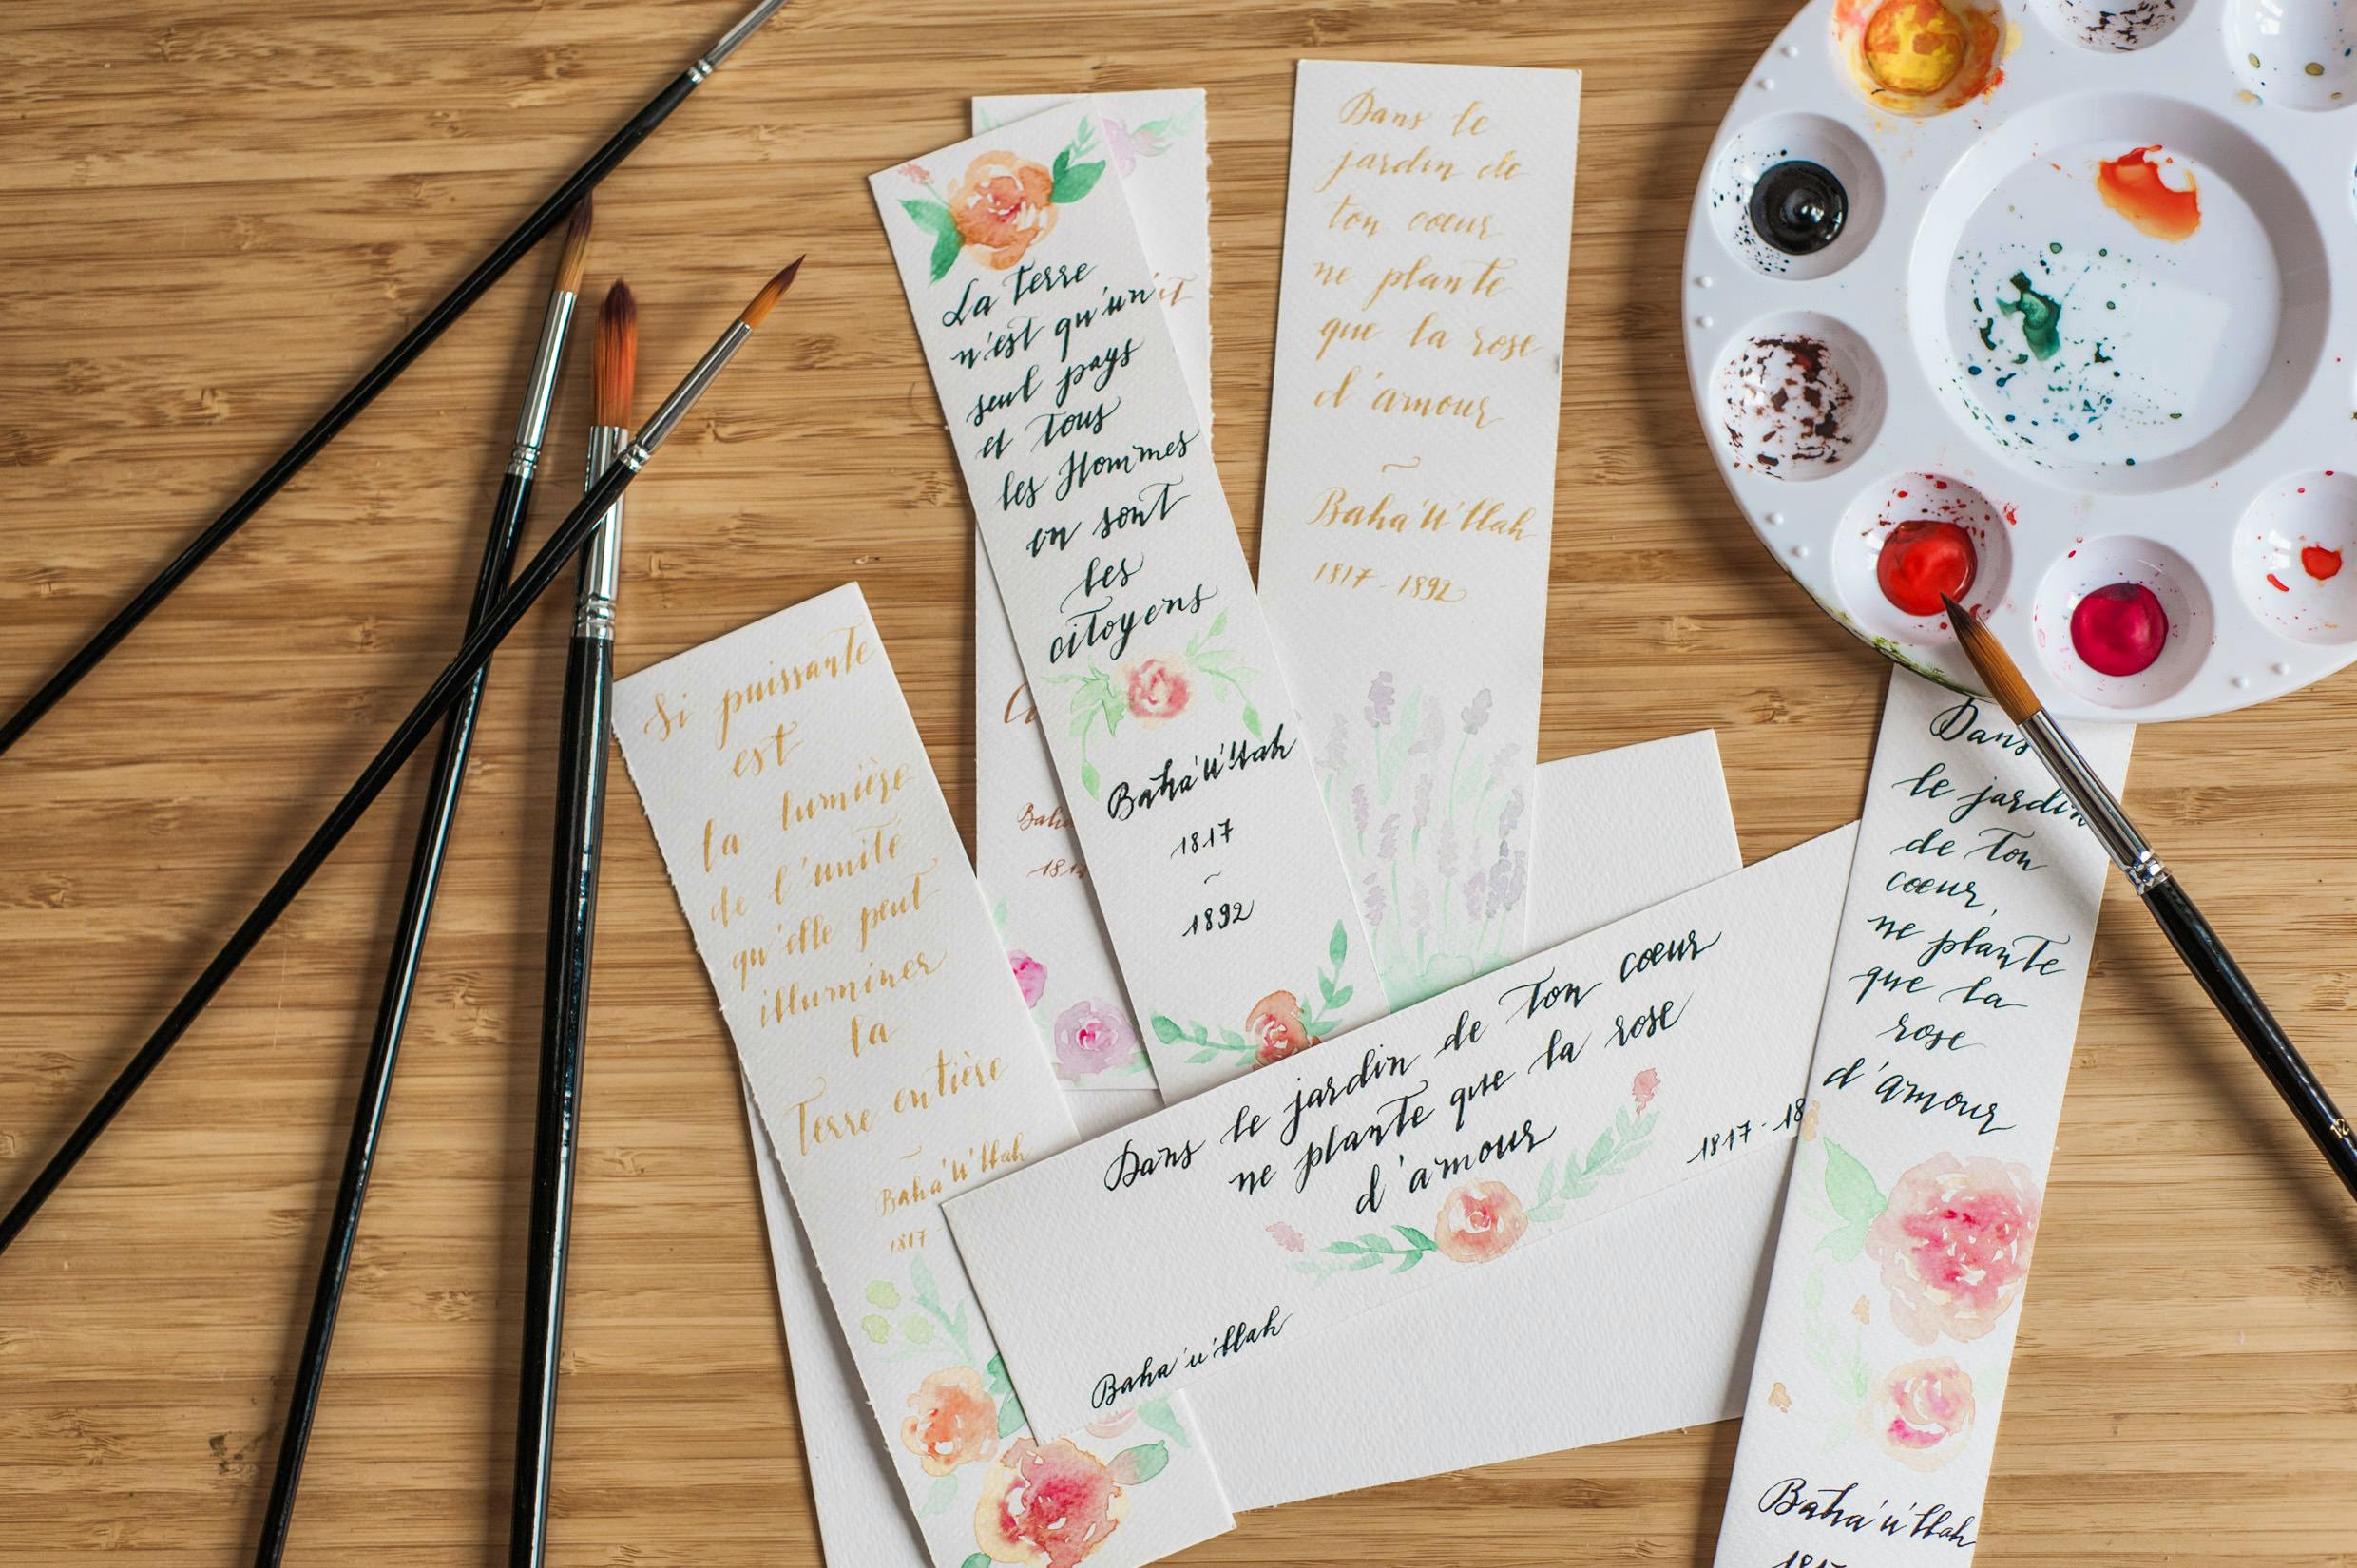 Si puissante
est
la lumière
de l'unité
qu'elle peut
illuminer
la
Terre entière
~
Baha'u'llah
1817
La Terre
n'est qu'un
seul pays
et Tous
les Hommes
en sont
les
citoyens
Baha'u'llah
1817
~
1892
Dans le
jardin de
ton coeur
ne plante
que la rose
d'amour
~
Baha'u'llah
1817-1892
Dans le jardin de Ton coeur
ne plante que la rose
d'amour
1817-18
Baha'u'llah
Dans
le jardin
de Ton
coeur,
ne plante
que la
rose
d'amour
Baha'u'llah
1817
12